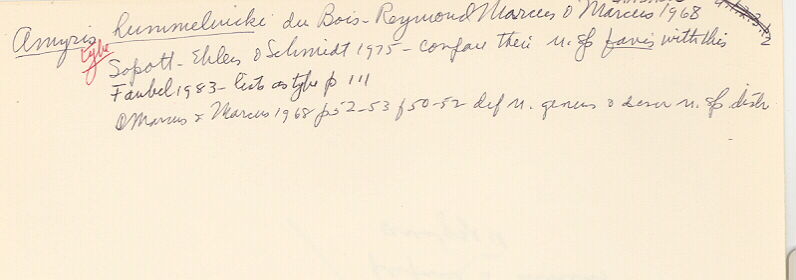 Amyris hummelincki du Bois-Reymond Marcus & Marcus 1968
type
Sopott-Ehlers & Schmidt 1975 - compare their n. sp. pavis with this
Faubel 1983 - lists as type p 111
D Marcus & Marcus 1968 p52-53 f50-52 def n. genus & descr n. sp. distr